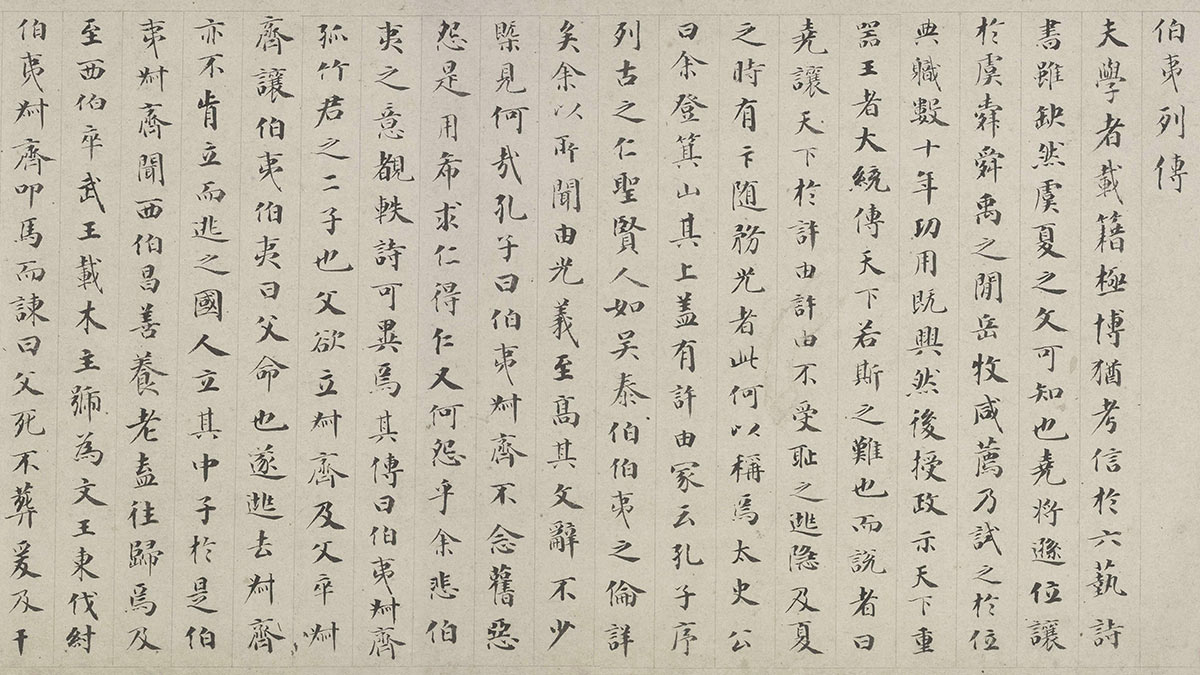 伯夷列傳
夫學者載籍極博猶考信於六藝詩
書雖缺然虞夏之文可知也堯將遜位讓
於虞舜舜禹之閒岳牧咸薦乃試之於位
典職數十年功用既興然後授政示天下重
器王者大統傳天下若斯之難也而說者曰
堯讓天下於許由許由不受恥之逃隱及夏
之時有卞随務光者此何以稱焉太史公
曰余登箕山其上盖有許由冢云孔子序
列古之仁聖賢人如吴泰伯伯夷之倫詳
矣余以所聞由光義至髙其文辭不少
槩見何哉孔子曰伯夷叔齊不念舊惡
怨是用希求仁得仁又何怨乎余悲伯
夷之意覩軼詩可異焉其傳曰伯夷叔齊
孤竹君之二子也父欲立叔齊及父卒叔
齊讓伯夷伯夷曰父命也遂逃去叔齊
亦不肯立而逃之國人立其中子於是伯
夷叔齊聞西伯昌善養老盍往歸焉及
至西伯卒武王載木主號為文王東伐紂
伯夷叔齊叩馬而諫曰父死不葬爰及干